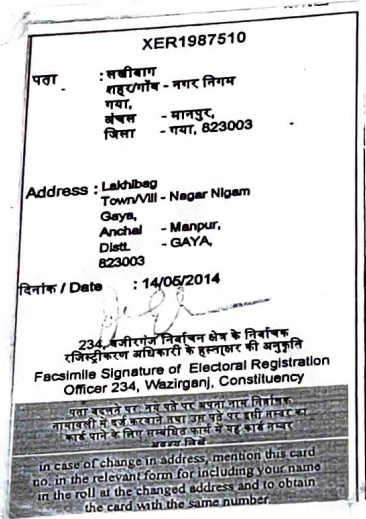 XER1987510
पता : लखीबाग
शहर/गाँव - नगर निगम
गया,
अंचल - मानपुर,
जिला - गया, 823003
Address : Lakhibag
Town/Vill - Nagar Nigam
Gaya,
Anchal - Manpur,
Distt. - GAYA,
823003
दिनांक / Date : 14/05/2014
234, वजीरगंज निर्वाचन क्षेत्र के निर्वाचक
रजिस्ट्रीकरण अधिकारी के हस्ताक्षर की अनुकृति
Facsimile Signature of Electoral Registration
Officer 234, Wazirganj, Constituency
पता बदलने पर, नये पते पर अपना नाम निर्वाचक
नामावली में दर्ज करवाने तथा उस पते पर इसी नम्बर का
कार्ड पाने के लिए सम्बंधित फार्म में यह कार्ड नम्बर
अवश्य लिखें
in case of change in address, mention this card
no. in the relevant form for including your name
in the roll at the changed address and to obtain
the card with the same number.